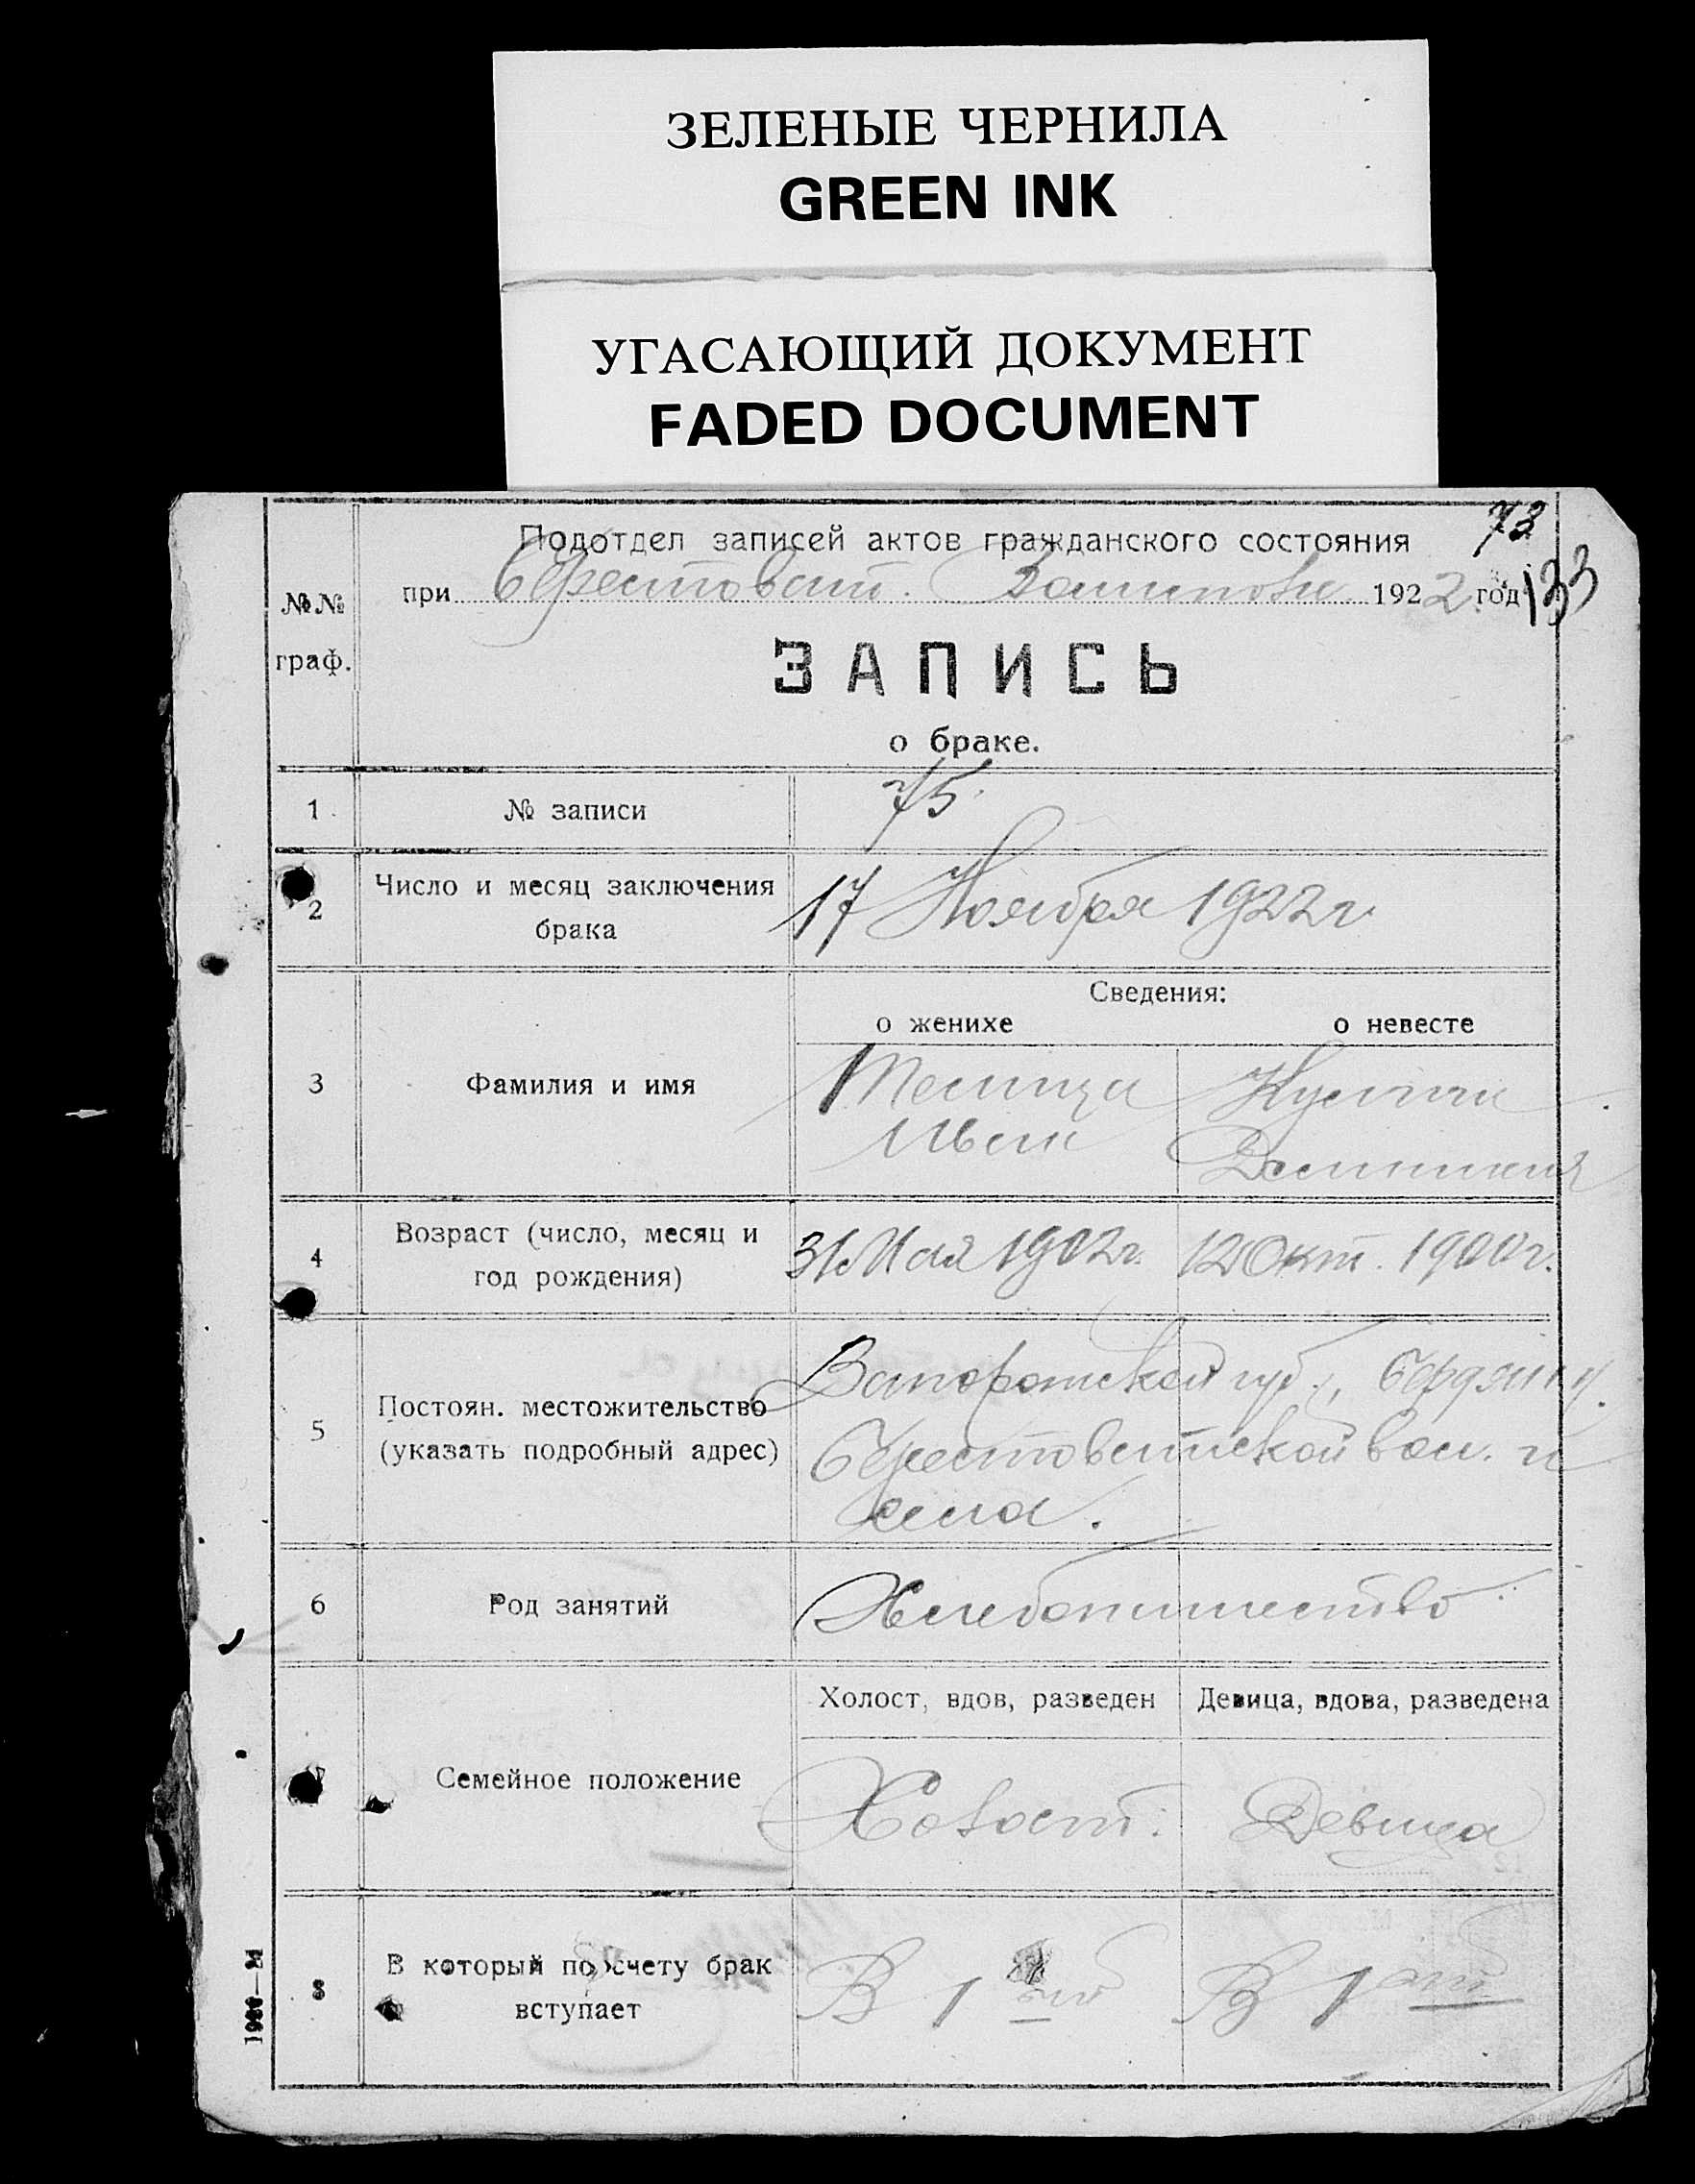 ЗЕЛЕНЫЕ ЧЕРНИЛА
GREEN INK
УГАСАЮЩИЙ ДОКУМЕНТ
FADED DOCUMENT
73
133
Подотдел записей актов гражданского состояния
при Берестоват. 1922 год
№№ граф.
ЗАПИСЬ
о браке.
1 № записи 75.
2 Число и месяц заключения брака 17 Ноября 1922 г.
Сведения:
о женихе о невесте
3 Фамилия и имя
Иван
4 Возраст (число, месяц и год рождения) 31 Мая 1902 г. 12 Окт. 1900 г.
5 Постоян. местожительство (указать подробный адрес)
Запорожской губ., Бердян у.
Берестоватской вол. и
села.
6 Род занятий Хлебопашество
Холост, вдов, разведен Девица, вдова, разведена
7 Семейное положение Холост. Девица
8 В который по счету брак вступает В 1 ый В 1 ый